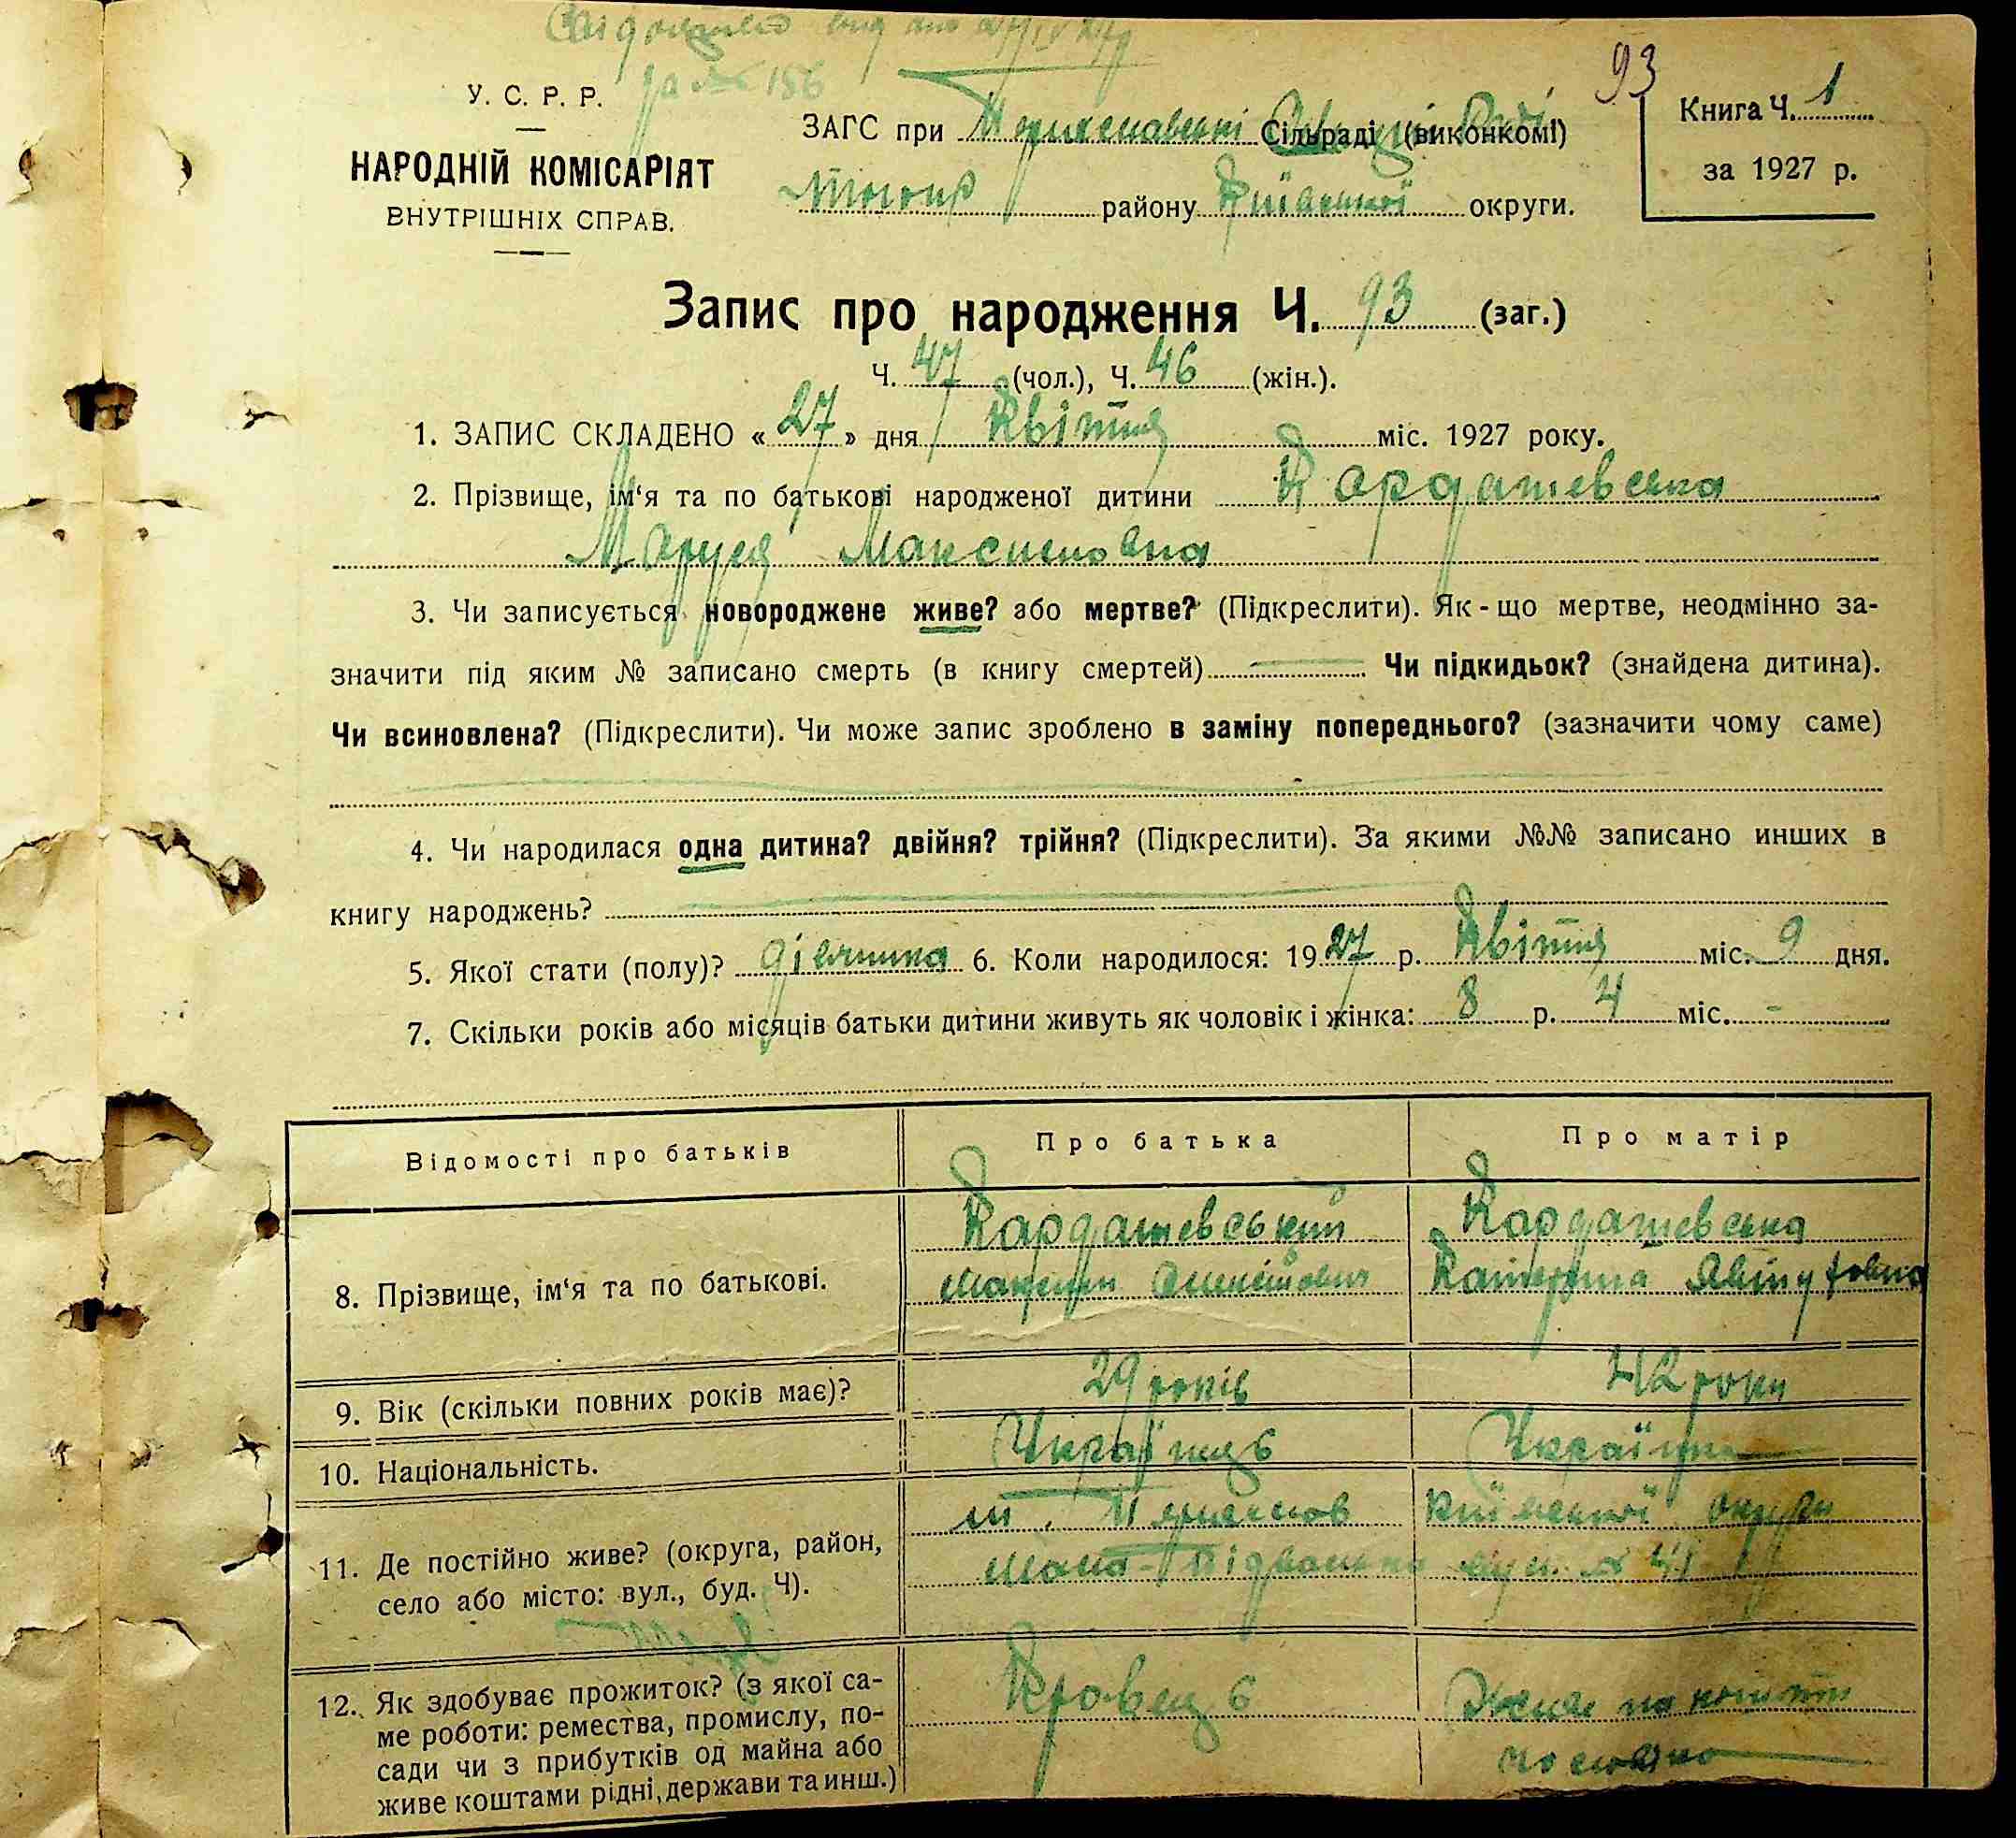 за № 156
93
У. С. Р. Р.
НАРОДНІЙ КОМІСАРІЯТ
ВНУТРІШНІХ СПРАВ.
ЗАГС при Сільраді (виконкомі)
району Київської округи.
Книга Ч. 1
за 1927 р.
Запис про народження Ч. 93 (заг.)
Ч. 47 (чол.), Ч. 46 (жін.).
1. ЗАПИС СКЛАДЕНО « 27 » дня Квітня міс. 1927 року.
2. Прізвище, ім‘я та по батькові народженої дитини Кардашевська
Маруся Максимовна
3. Чи записується новороджене живе? або мертве? (Підкреслити). Як-що мертве, неодмінно за-
значити під яким № записано смерть (в книгу смертей) Чи підкидьок? (знайдена дитина).
Чи всиновлена? (Підкреслити). Чи може запис зроблено в заміну попереднього? (зазначити чому саме)
4. Чи народилася одна дитина? двійня? трійня? (Підкреслити). За якими №№ записано инших в
книгу народжень?
5. Якої стати (полу)? дівчинка 6. Коли народилося: 1927 р. Квітня міс. 9 дня.
7. Скільки років або місяців батьки дитини живуть як чоловік і жінка: 8 р. 4 міс. -
Відомості про батьків Про батька Про матір
8. Прізвище, ім‘я та по батькові.
Кардашевський
Максим
Кардашевська
Катерина
9. Вік (скільки повних років має)? 29 років 42 роки
10. Національність. Українець Українка
11. Де постійно живе? (округа, район,
село або місто: вул., буд. Ч).
м. Київської округи
вул. № 41
12. Як здобуває прожиток? (з якої са-
ме роботи: ремества, промислу, по-
сади чи з прибутків од майна або
живе коштами рідні, держави та инш.)
Кравець
Живе на кошти
чоловіка